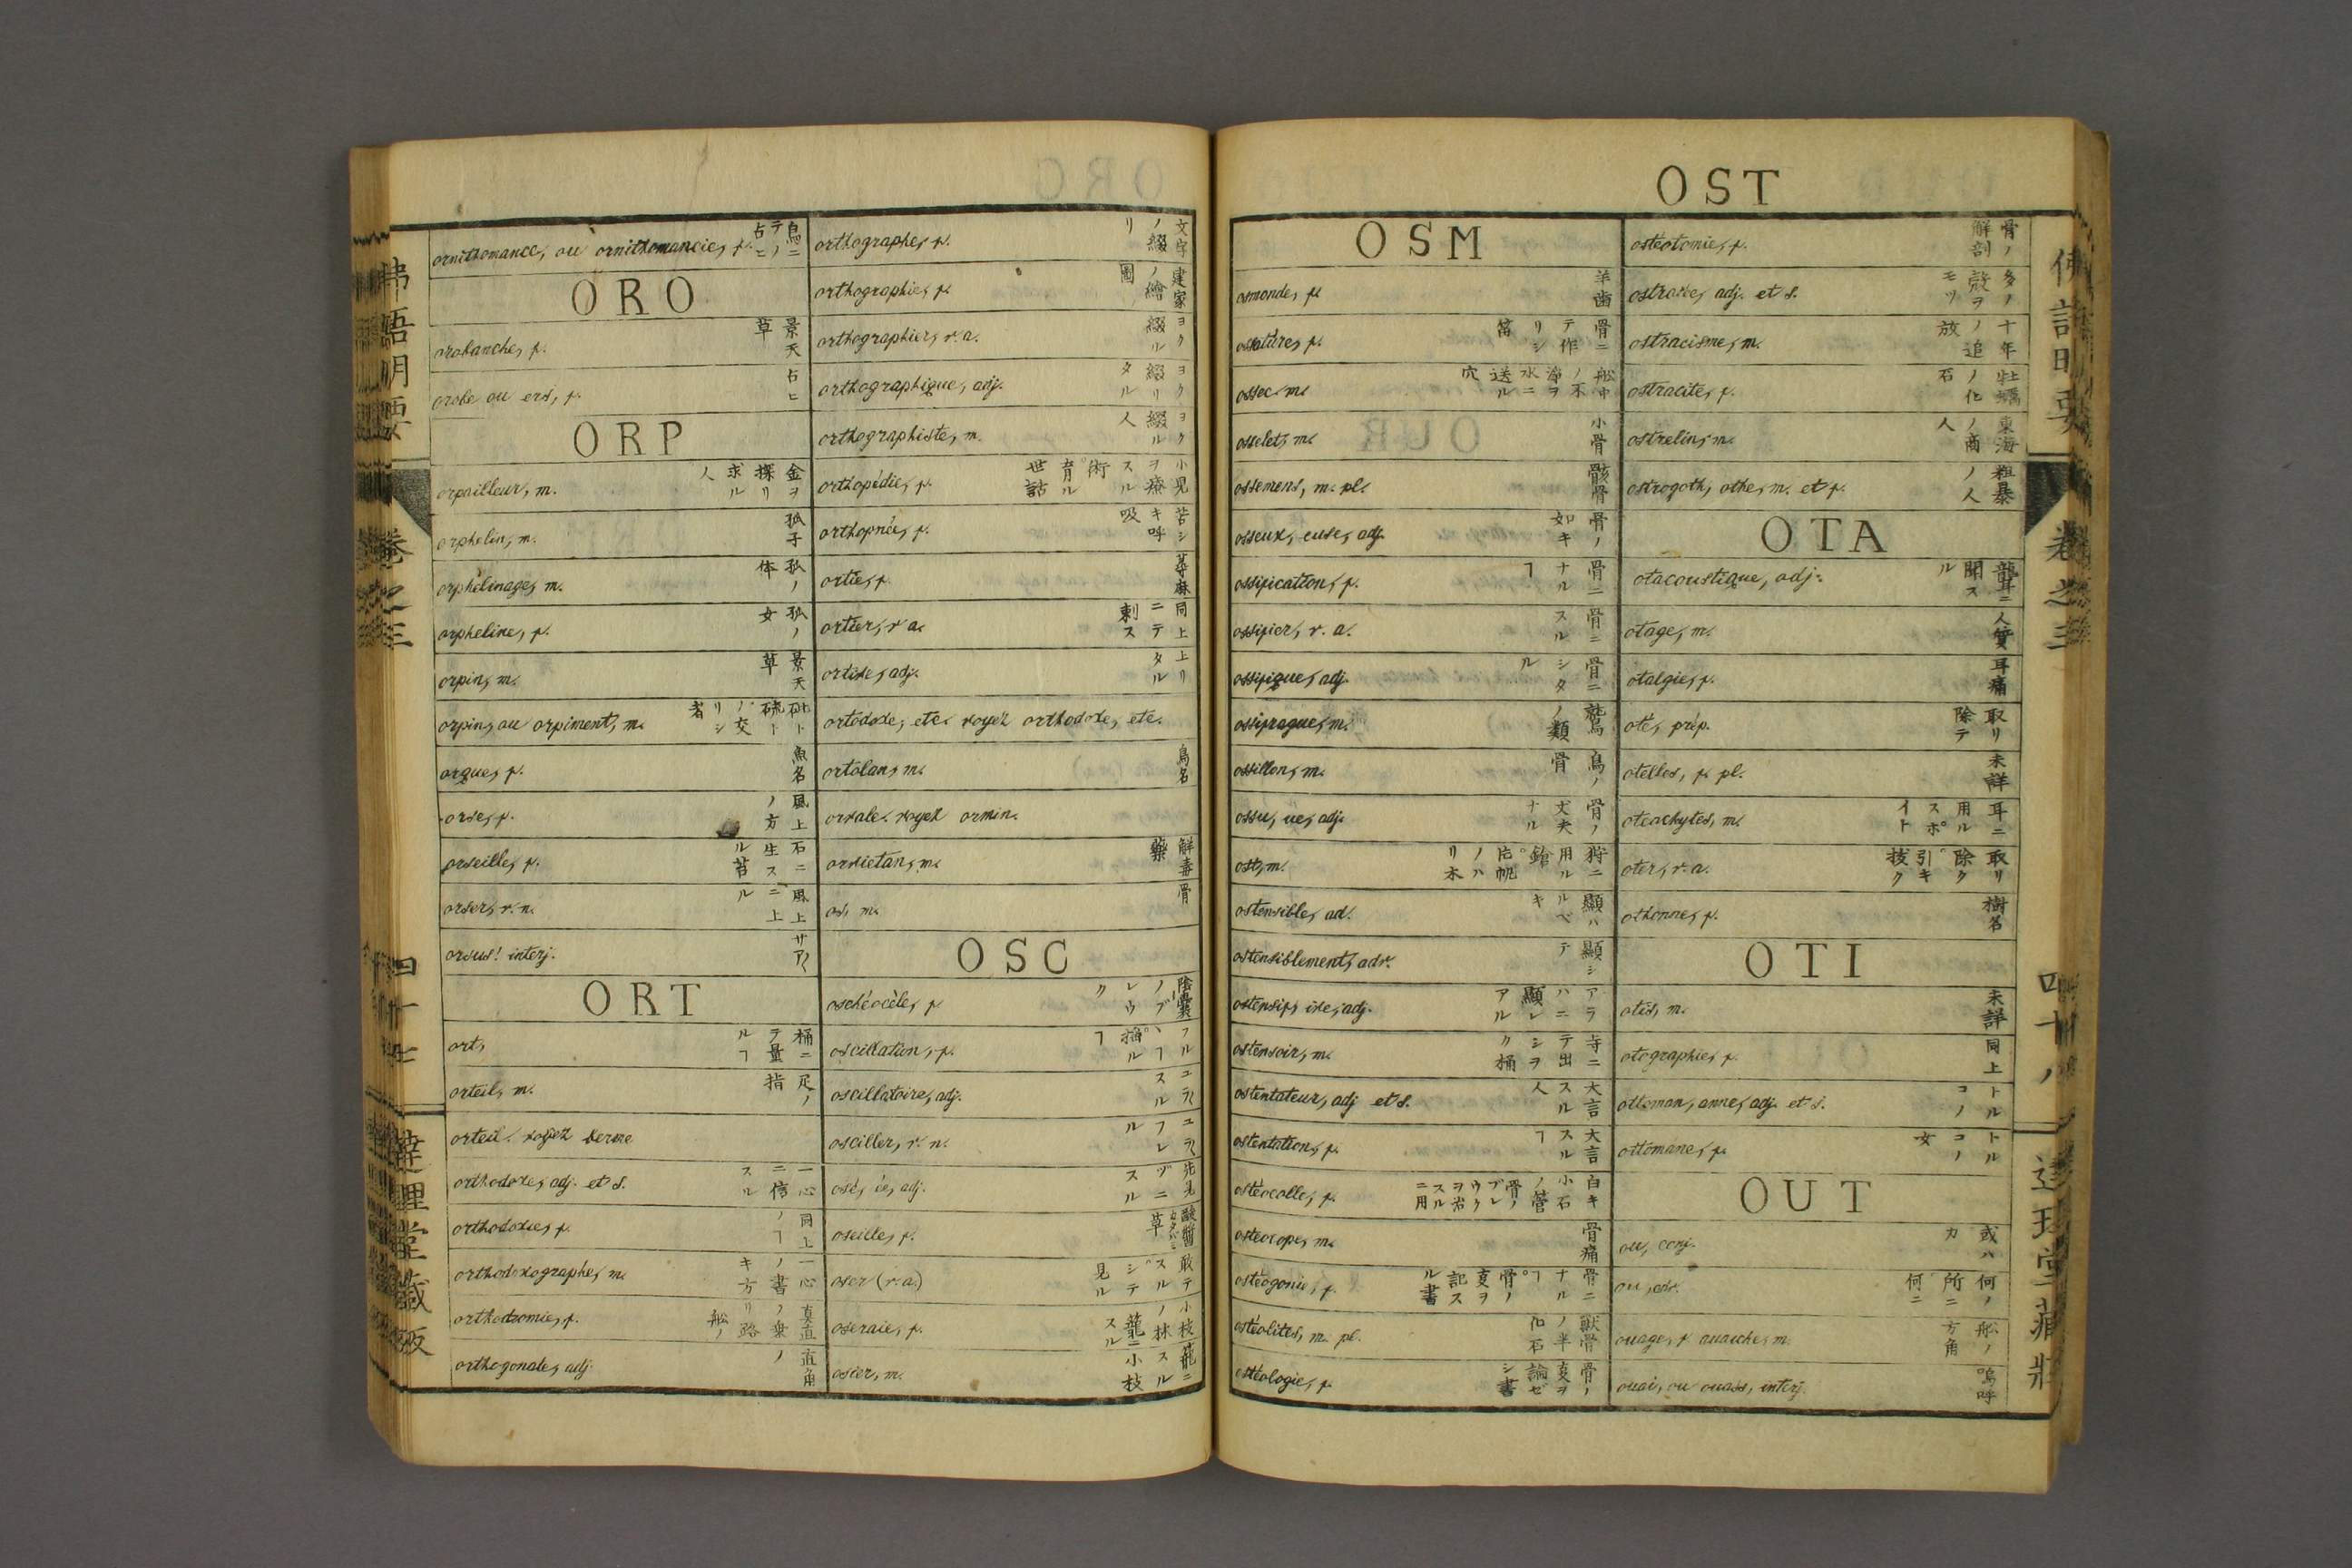 ornithomance, ou ornithomancie, f. 鳥ニテノ占ヒ
ORO
orobanche, f. 景天草
orobe ou ers, f. 占ヒ
ORP
orpailleur, m. 金ヲ探リ求ル人
orphelin, m. 孤子
orphelinage, m. 孤ノ体
orpheline, f. 孤ノ女
orpin, m. 景天草
orpin, ou orpiment, m. 砒ト硫トノ交リシ者
orque, f. 魚名
orse, f. 風上ノ方
orseille, f. 石ニ生スル苔
orser, v. n. 風上ニ上ル
orsus! interj. サア〱
ORT
ort, 桶ニテ量ルヿ
orteil, m. 足ノ指
orteil. voyez berme
orthodoxe, adj. et s. 一心ニ信スル
orthodoxie, f. 同上ノヿ
orthodoxographe, m. 一心ノ書キ方
orthodromie, f. 真直ノ乗リ路 舩ノ
orthogonale, adj. 直角ノ
orthographe, f. 文字ノ綴リ
orthographie, f. 建家ノ繪圖
orthographier, v. a. ヨク綴ル
orthographique, adj. ヨク綴リタル
orthographiste, m. ヨク綴ル人
orthopédie, f. 小児ヲ療スル術。育ル世話
orthopnée, f. 苦シキ呼吸
ortie, f. 蕁麻
ortier, v. a. 同上ニテ刺ス
ortive, adj. 上リタル
ortodoxe, etc. voyez orthodoxe, etc.
ortolan, m. 鳥名
orvale. voyez ormin.
orviétan, m. 解毒藥
os, m. 骨
OSC
oschéocèle, f. 陰嚢ノブレウク
oscillation, f. フルフヿ
oscillatoire, adj. ユラ〱スル
osciller, v. n. ユラ〱フレル
osé, ée, adj. 先見ヅニスル
oseille, f. 酸醤草
oser (v. a.) 敢テスル。シテ見ル
oseraie, f. 小枝ノ林 籠ニスル
osier, m. 籠ニスル小枝
OST
OSM
osmonde, f. 羊歯
ossature, f. 骨ニテ作リシ笛
ossec, m. 舩中ノ不浄水ヲ送ル穴
osselet, m. 小骨
ossemens, m. pl. 骸骨
osseux, euse, adj. 骨ノ如キ
ossification, f. 骨ニナルヿ
ossifier, v. a. 骨ニスル
ossifique, adj. 骨ニシタル
ossifrague, m. 鷲ノ類
ossillon, m. 鳥ノ骨
ossu, ue, adj. 骨ノ丈夫ナル
ost, m.
ostensible, ad. 顯ハルベキ
ostensiblement, adv. 顯シテ
ostensif, ive, adj. アラハニ顯レアル
ostensoir, m. 寺ニテ出シヲク桶
ostentateur, adj et s. 大言スル人
ostentation, f. 大言スルヿ
ostéocolle, f. 白キ小石ノ管
ostéocope, m. 骨痛
ostéogonie, f. 骨ニナルヿ。骨ノ支ヲ記スル書
ostéolites, m. pl. 獣骨ノ半化石
ostéologie, f. 骨ノ支ヲ論ゼシ書
ostéotomie, f. 骨ノ解剖
ostracé, adj. et s. 多ノ殻ヲモツ
ostracisme, m. 十年ノ追放
ostracite, f. 牡蠣ノ化石
ostrelin, m. 東海ノ商人
ostrogoth, othe, m. et f. 粗暴ノ人
OTA
otacoustique, adj. 聾耳ニ聞スル
otage, m. 人質
otalgie, f. 耳痛
oté, prép. 取リ除テ
otelles, f. pl. 未詳
otenchytes, m. 耳ニ用ルスポイト
oter, v. a. 取リ除ク。引キ抜ク
othonne, f. 樹名
OTI
otis, m. 未詳
otographie, f. 同上
ottoman, anne, adj. et s. トルコノ
ottomane, f. トルコノ女
OUT
ou, conj. 或ハカ
ou, adv. 何ノ所ニ 何ニ
ouage, f. ouaiche, m. 舩ノ方角
ouai, ou ouass, interj. 嗚呼